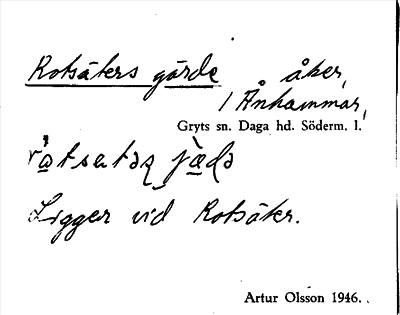 Rotsäkers gärde åker,
/ Ånhammar,
Gryts sn. Daga hd. Söderm. l.
Ligger vid Rotsäker.
Artur Olsson 1946.